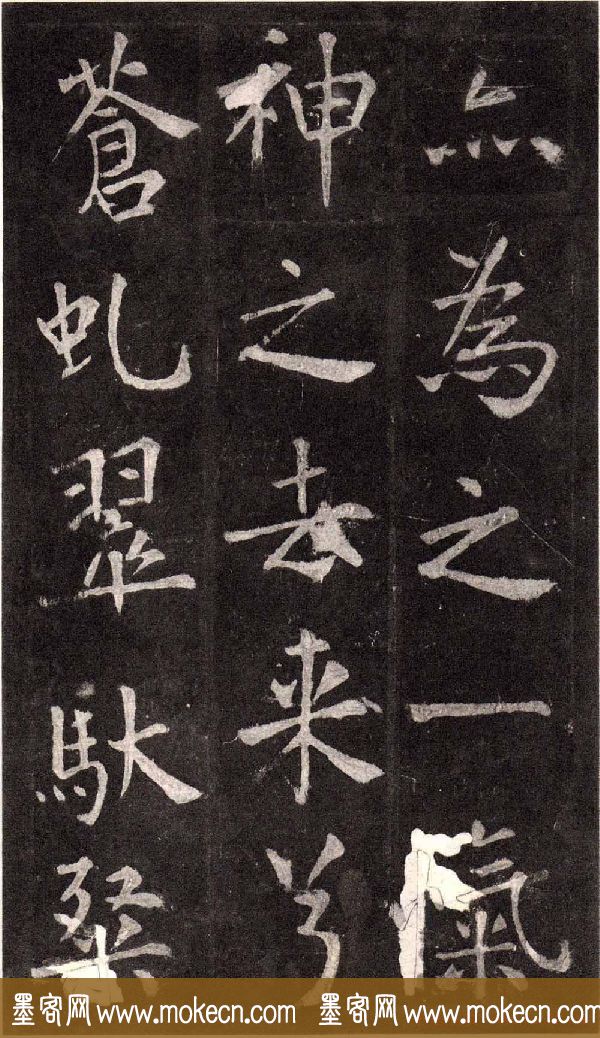 亦為之一氣
神之去来兮
蒼虬翠馱
墨客网 www.mokecn.com 墨客网 www.mokecn.com